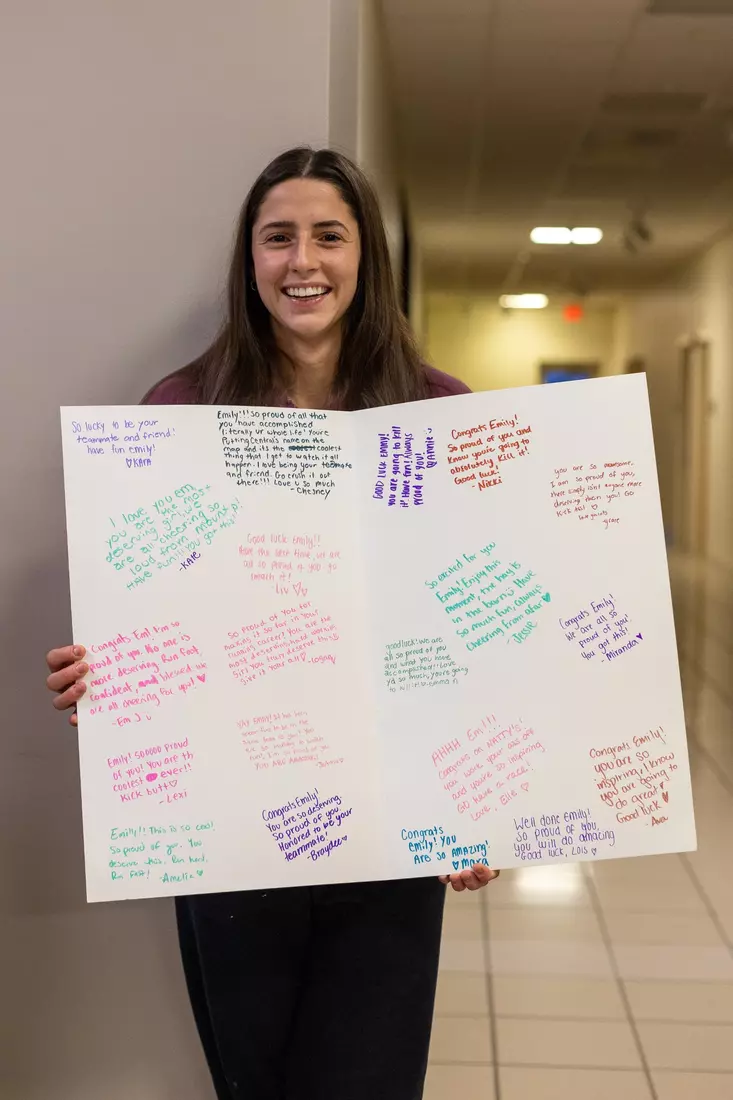 So lucky to be your
teammate and friend!
have fun emily!
♡KARA
Emily!!! So proud of all that
you have accomplished
(literally ur whole life! You're
Putting Central's name on the
map and its the coolest
thing that I get to watch it all
happen. I love being your teamate
and friend. Go crush it out
there!!! Love u so much
- Chesney
I love you Em,
you are the most
deserving girl! We
are all cheering so
loud from mount p!
HAVE fun!!! You got this!!
-KATE
Good luck Emily!!
Have the best time, we are
all so proud of you to
watch it!
Liv ♡♡
Congrats Em! I'm so
proud of you. No one is
more deserving. Run fast,
confident, and blessed. We
are all cheering for you! ♥
-Em J
So proud of you for
making it so far in your
running career! You are the
most deserving
girl! You truly deserve this
Give it your all! -Logan
Emily! sooooo proud
of you! You are th
coolest ever!!
Kick butt♡
- Lexi
YAY EMILY!
YOU ARE AMAZING!
Emily!! This is so cool!
So proud of you. You
deserve this. Run hard,
Run fast! -Amelia♡
Congrats Emily!
You are so deserving.
So proud of you.
Honored to be your
teammate!
-Braydee
GOOD LUCK EMMY!
you are going to kill
it! Have fun! Always
proud of you!
♡Annie
Congrats Emily!
So proud of you and
know you're going to
absolutely kill it!
- Nicki
you are so awesome.
I am so proud of you,
there simply isn't anyone more
deserving than you! Go
kick butt ♡
grace
So excited for you
Emily! Enjoy this
moment, the hay is
in the barn! Have
so much fun, always
cheering from afar♥
-Jessie
Congrats Emily!
We are all so
proud of you!
You got this!
- Miranda♥
goodluck! We are
all so proud of you
and what you have
accomplished!! Love
yd so much, you're going
to kill it!
AHHH Em!!!
Congrats on NATTY'S!
you work your ass off
and you're so inspiring
Go have a race!
Love, Elle ♡
Congrats Emily!
you are so
inspiring, I know
you are going to
do great!
Good luck ♥
-Ava
Congrats
Emily! You
Are so AMAZING!
♡Mara
Well done Emily!
So proud of you,
You will do amazing
Good luck, Lois♡